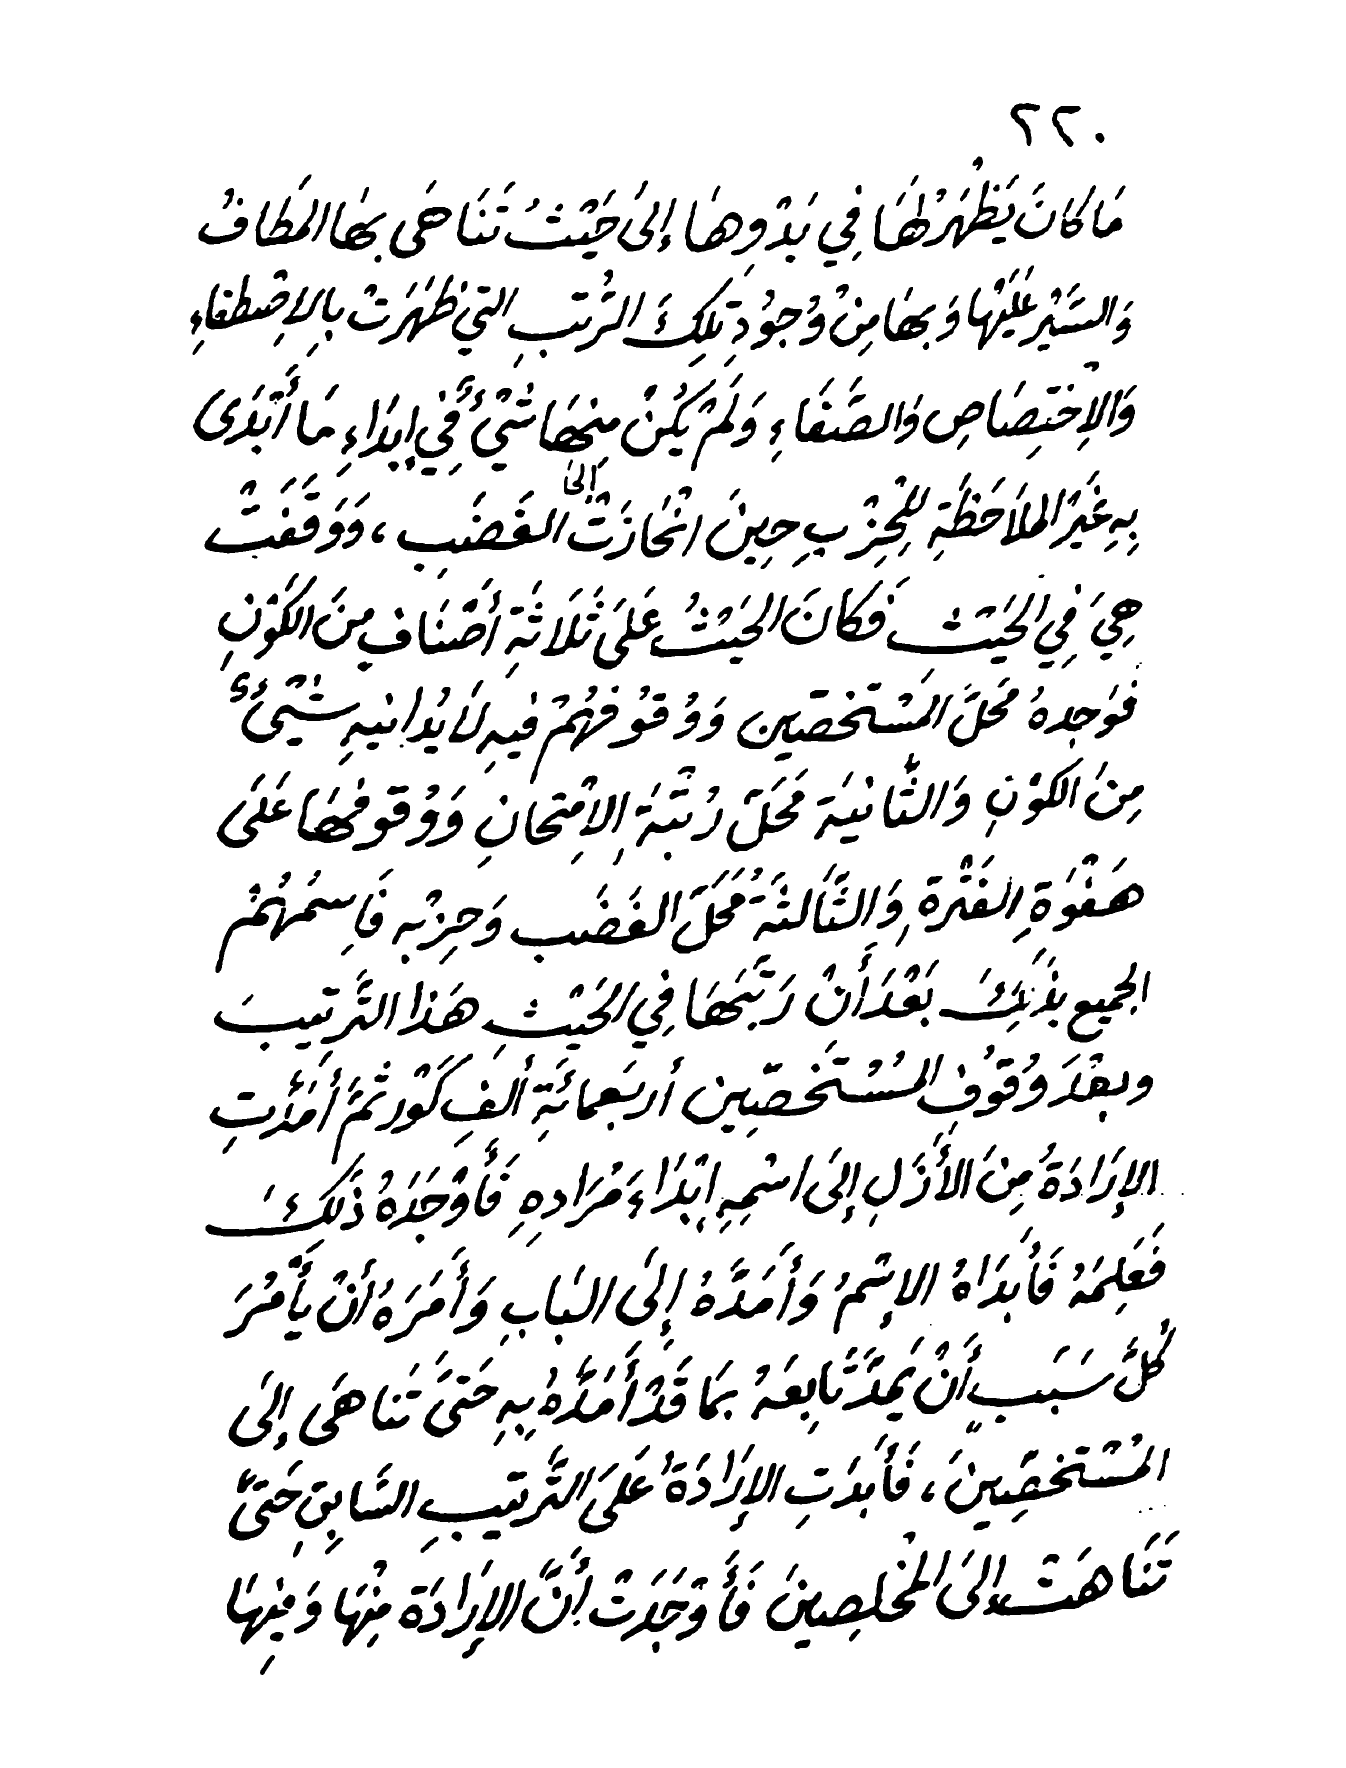 ٢٢٠
مَا كَانَ يَظْهَرُ لَهَا فِي بَدْوِهَا إِلَىٰ حَيْثُ تَنَاهَى بِهَا المَطَافُ
وَالسَّيْرُ عَلَيْهَا وَبِهَا مِنْ وُجُودِ تِلكَ الرُّتَبِ التي ظَهَرَتْ بِالِاصْطِفَاءِ
وَالاِخْتِصَاصِ وَالصَّفَاءِ وَلَمْ يَكُنْ مِنهَا شَيْئٌ فِي إِبدَاءِ مَا أَبْدَى
بِهِ غَيْرَ المُلَاحَظَةِ لِلحِزْبِ حِينَ انْحَازَتْ إلىَ الغَضَبِ، وَوَقَفَتْ
هِيَ فِي الحَيْثِ فَكَانَ الحَيْثُ عَلَى ثَلَاثَةِ أَصْنَافٍ مِنَ الكَوْنِ
فَوَجدهُ مَحَلَّ المُسْتَخصّين وَوُقُوفُهُمْ فيهِ لَا يُدانيهِ شَيْئٌ
مِنَ الكَوْنِ وَالثَّانيَة مَحَلّ رُتْبَةِ الِامْتِحَانِ وَوُقوفهَا عَلَى
هَفْوَةِ الفَتْرة وَالثَّالثَةُ مَحَلّ الغَضَب وَحِزْبِه فَاسمُهُمْ
الجميع بذَلِكَ بَعْدَ أَنْ رَتَّبَهَا فِي الحَيْثِ هَذا التَّرتيبَ
وبعْدَ وُقُوفِ المُسْتَخَصّين أربَعمائَةِ ألفِ كَوْر ثُمَّ أَمَدَّتِ
الإِرَادَةُ مِنَ الأَزَلِ إِلَى اسْمِهِ إِبْدَاءَ مُرَادِهِ فَأَوْجَدَهُ ذَلِكَ
فَعَلِمَهُ فَأَبدَاهُ الإسْمُ وَأَمَدَّهُ إِلَى البَابِ وَأَمَرَهُ أَنْ يَأْمُرَ
كُلَّ سَبَبٍ أَنْ يَمِدَّ تَابِعَهُ بمَا قَدْ أَمَدَّهُ بِهِ حَتىَّ تَناهَى إِلَى
المُسْتَخصِّينَ، فَأَبدَتِ الإِرَادَةُ عَلَى التَّرتيبِ السَّابِقِ حَتىَّ
تَنَاهَتْ إِلَى المُخلِصِينَ فَأَوْجَدَتْ أَنَّ الإِرَادَةَ مِنْهَا وَمِنهَا